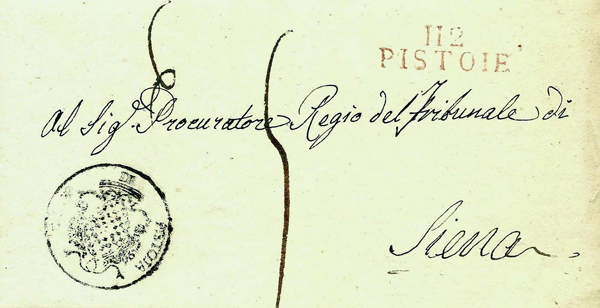 112
PISTOIE
Al Sig.r Procuratore Regio del Tribunale di
Siena.
PISTOIA